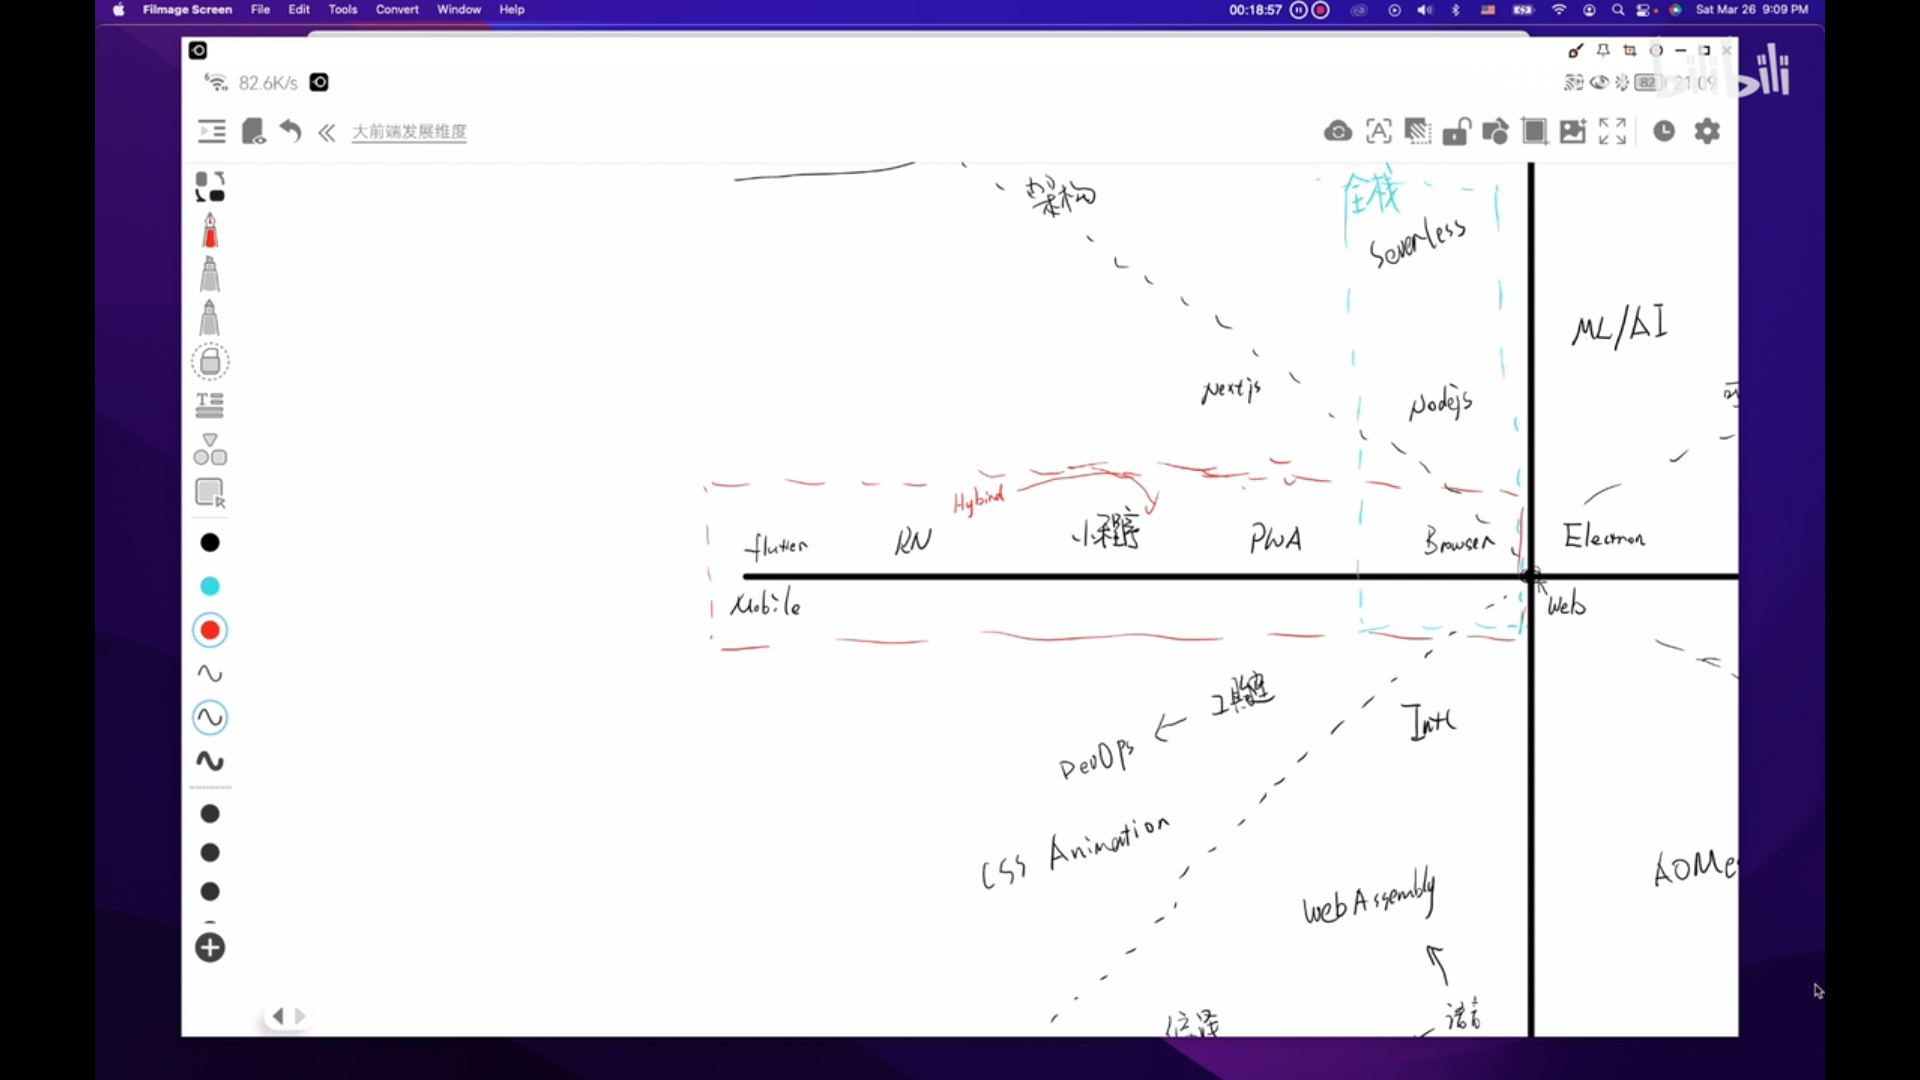 Filmage Screen File Edit Tools Convert Window Help
00:18:57
Sat Mar 26 9:09 PM
bilibili
82.6K/s
82
21:09
大前端发展维度
架构
全栈
Severless
ML/AI
Nextjs
Nodejs
Hybind
flutter
RN
小程序
PWA
Browser
Electron
Mobile
Web
工具链
Intl
DevOps
CSS Animation
WebAssembly
AOMe
语言
编译